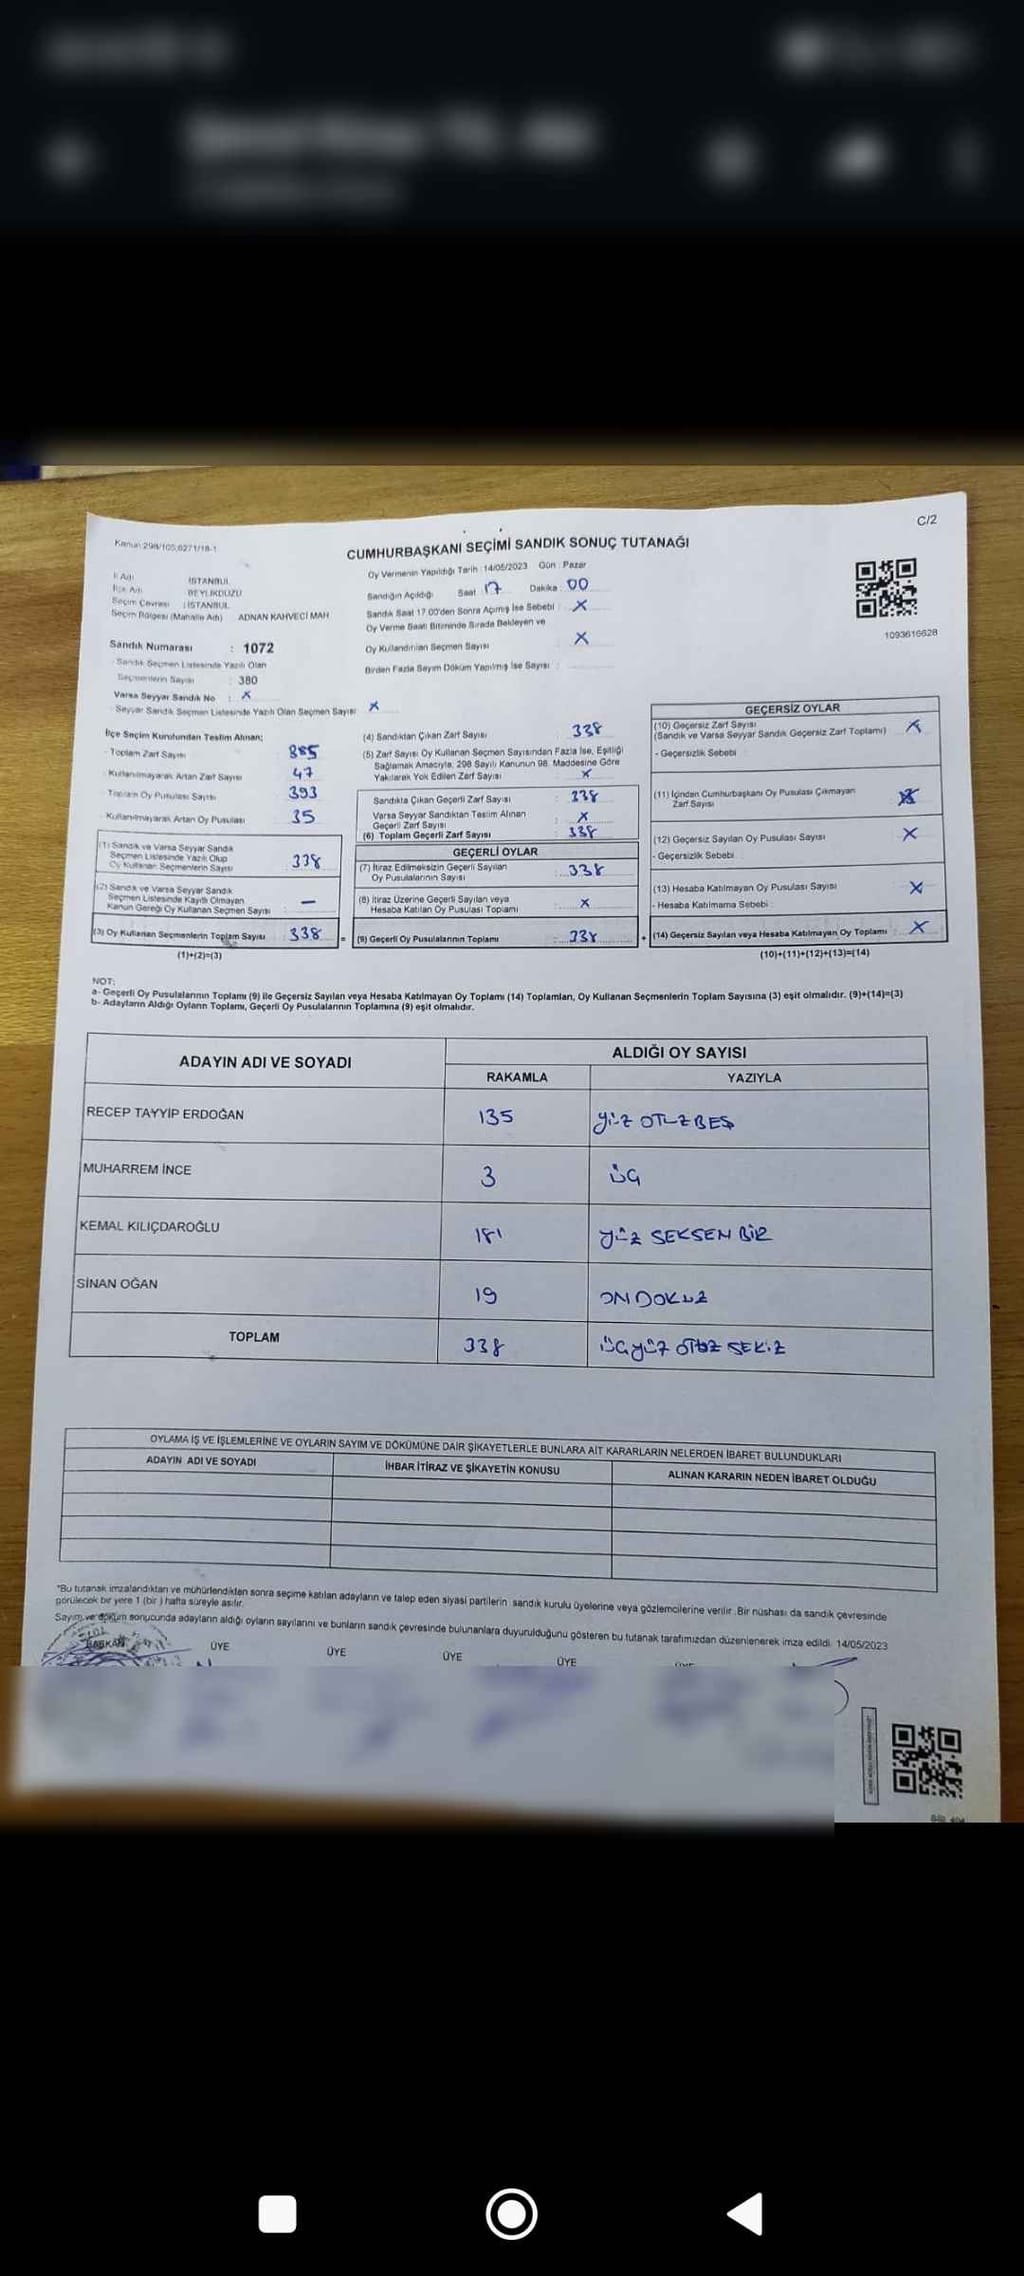 C/2
Kanun 298/105,6271/18-1
CUMHURBAŞKANI SEÇİMİ SANDIK SONUÇ TUTANAĞI
Oy Vermenin Yapıldığı Tarih : 14/05/2023 Gün : Pazar
İl Adı : İSTANBUL
İlçe Adı : BEYLİKDÜZÜ
Seçim Çevresi : İSTANBUL
Seçim Bölgesi (Mahalle Adı) ADNAN KAHVECİ MAH
Sandık Numarası : 1072
Sandık Seçmen Listesinde Yazılı Olan
Seçmenlerin Sayısı : 380
Varsa Seyyar Sandık No : X
Seyyar Sandık Seçmen Listesinde Yazılı Olan Seçmen Sayısı X
Sandığın Açıldığı Saat 17 Dakika : 00
Sandık Saat 17.00'den Sonra Açılmış İse Sebebi : X
Oy Verme Saati Bitiminde Sırada Bekleyen ve
Oy Kullandırılan Seçmen Sayısı X
Birden Fazla Sayım Döküm Yapılmış İse Sayısı :
1093616628
İlçe Seçim Kurulundan Teslim Alınan;
- Toplam Zarf Sayısı 385
- Kullanılmayarak Artan Zarf Sayısı 47
- Toplam Oy Pusulası Sayısı 393
- Kullanılmayarak Artan Oy Pusulası 35
(1) Sandık ve Varsa Seyyar Sandık
Seçmen Listesinde Yazılı Olup
Oy Kullanan Seçmenlerin Sayısı 338
(2) Sandık ve Varsa Seyyar Sandık
Seçmen Listesinde Kayıtlı Olmayan
Kanun Gereği Oy Kullanan Seçmen Sayısı —
(3) Oy Kullanan Seçmenlerin Toplam Sayısı 338 =
(1)+(2)=(3)
(4) Sandıktan Çıkan Zarf Sayısı : 338
(5) Zarf Sayısı Oy Kullanan Seçmen Sayısından Fazla İse, Eşitliği
Sağlamak Amacıyla, 298 Sayılı Kanunun 98. Maddesine Göre
Yakılarak Yok Edilen Zarf Sayısı : X
Sandıkta Çıkan Geçerli Zarf Sayısı : 338
Varsa Seyyar Sandıktan Teslim Alınan
Geçerli Zarf Sayısı : X
(6) Toplam Geçerli Zarf Sayısı : 338
GEÇERLİ OYLAR
(7) İtiraz Edilmeksizin Geçerli Sayılan
Oy Pusulalarının Sayısı : 338
(8) İtiraz Üzerine Geçerli Sayılan veya
Hesaba Katılan Oy Pusulası Toplamı : X
(9) Geçerli Oy Pusulalarının Toplamı : 338 +
GEÇERSİZ OYLAR
(10) Geçersiz Zarf Sayısı
(Sandık ve Varsa Seyyar Sandık Geçersiz Zarf Toplamı) X
- Geçersizlik Sebebi
(11) İçinden Cumhurbaşkanı Oy Pusulası Çıkmayan
Zarf Sayısı
(12) Geçersiz Sayılan Oy Pusulası Sayısı X
- Geçersizlik Sebebi
(13) Hesaba Katılmayan Oy Pusulası Sayısı X
- Hesaba Katılmama Sebebi :
(14) Geçersiz Sayılan veya Hesaba Katılmayan Oy Toplamı : X
(10)+(11)+(12)+(13)=(14)
NOT:
a- Geçerli Oy Pusulalarının Toplamı (9) ile Geçersiz Sayılan veya Hesaba Katılmayan Oy Toplamı (14) Toplamları, Oy Kullanan Seçmenlerin Toplam Sayısına (3) eşit olmalıdır. (9)+(14)=(3)
b- Adayların Aldığı Oyların Toplamı, Geçerli Oy Pusulalarının Toplamına (9) eşit olmalıdır.
ADAYIN ADI VE SOYADI ALDIĞI OY SAYISI
RAKAMLA YAZIYLA
RECEP TAYYİP ERDOĞAN 135 YÜZ OTUZBEŞ
MUHARREM İNCE 3 ÜÇ
KEMAL KILIÇDAROĞLU 181 YÜZ SEKSEN BİR
SİNAN OĞAN 19 ONDOKUZ
TOPLAM 338 ÜÇYÜZ OTUZ SEKİZ
OYLAMA İŞ VE İŞLEMLERİNE VE OYLARIN SAYIM VE DÖKÜMÜNE DAİR ŞİKAYETLERLE BUNLARA AİT KARARLARIN NELERDEN İBARET BULUNDUKLARI
ADAYIN ADI VE SOYADI İHBAR İTİRAZ VE ŞİKAYETİN KONUSU ALINAN KARARIN NEDEN İBARET OLDUĞU
*Bu tutanak imzalandıktan ve mühürlendikten sonra seçime katılan adayların ve talep eden siyasi partilerin sandık kurulu üyelerine veya gözlemcilerine verilir. Bir nüshası da sandık çevresinde
görülecek bir yere 1 (bir) hafta süreyle asılır.
Sayım ve döküm sonucunda adayların aldığı oyların sayılarını ve bunların sandık çevresinde bulunanlara duyurulduğunu gösteren bu tutanak tarafımızdan düzenlenerek imza edildi. 14/05/2023
BAŞKAN ÜYE ÜYE ÜYE ÜYE